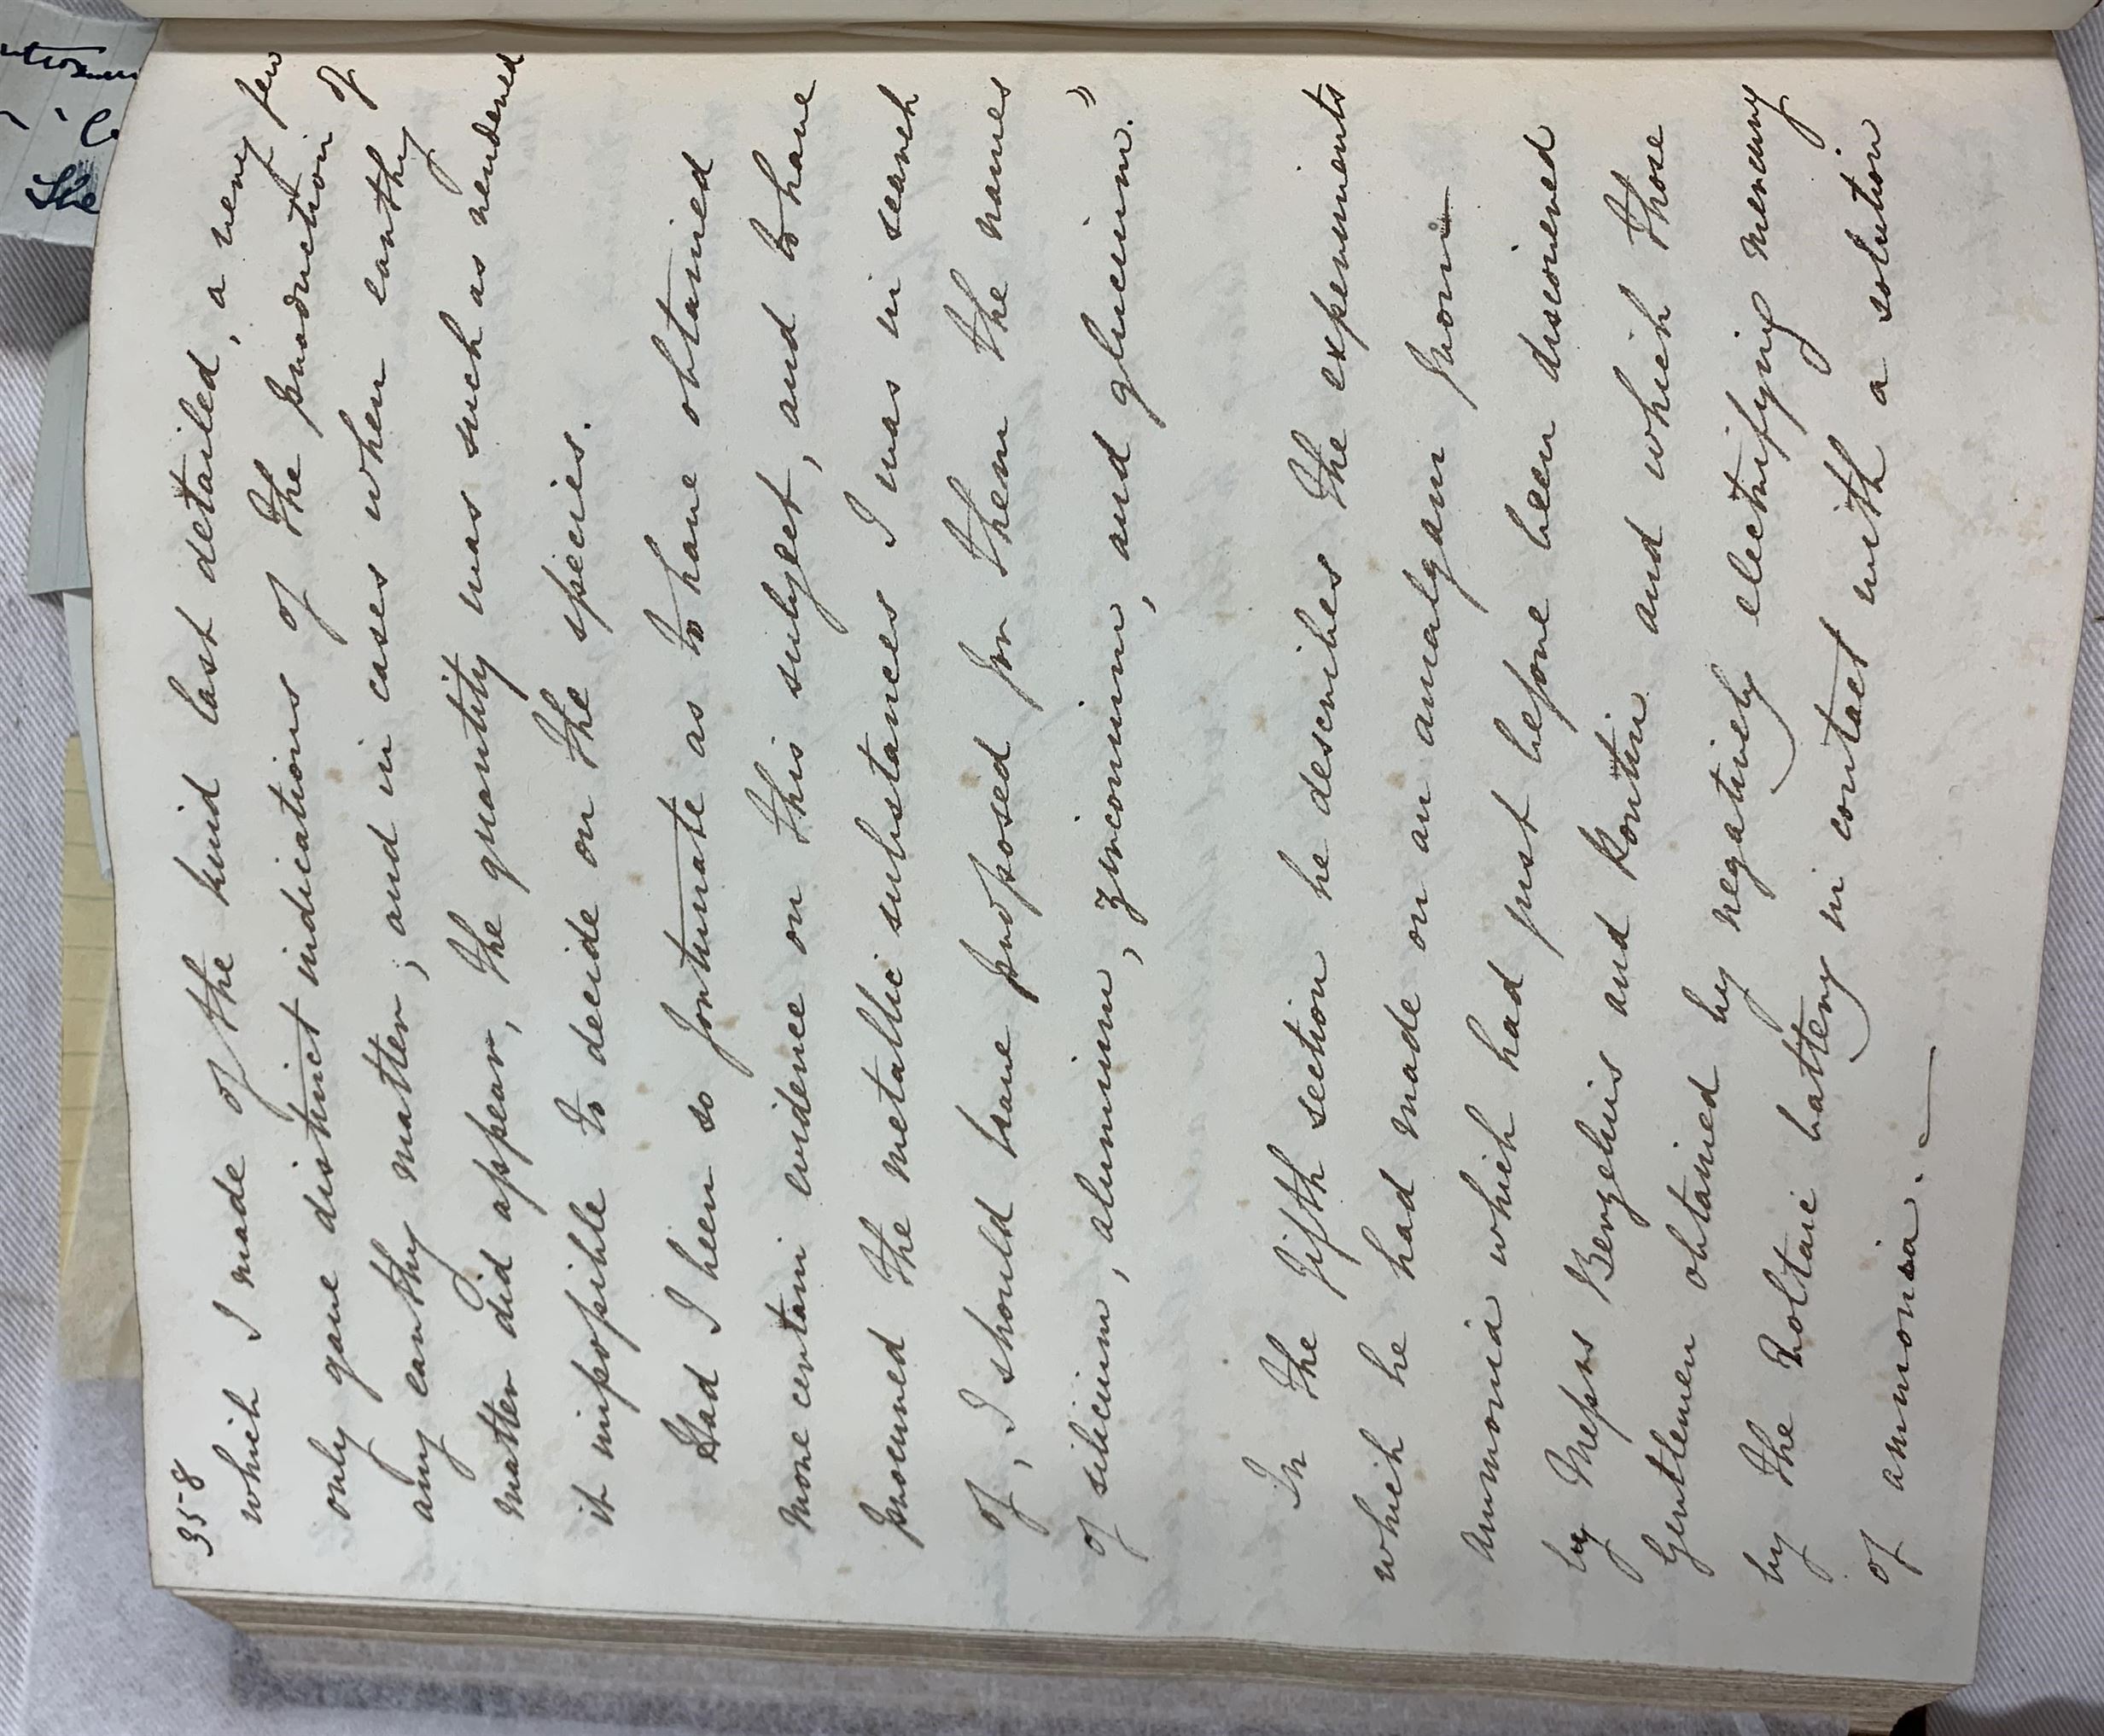 358
which I made of the kind last detailed, a very few
only gave distinct indications of the production of
any earthy matter; and in cases when earthy
matter did appear, the quantity was such as rendered
it impossible to decide on the species.
Had I been so fortunate as to have obtained
more certain evidence on this subject, and to have
procured the metallic substances I was in search
of, I should have proposed for them the names
of silicium, alumium, zirconium, and glucium."
In the fifth section he describes the experiments
which he had made on an amalgam from
ammonia which had just before been discovered
by Messrs Berzelius and Pontin and which those
Gentlemen obtained by negatively electrifying mercury
by the Voltaic battery in contact with a solution
of ammonia. —
the